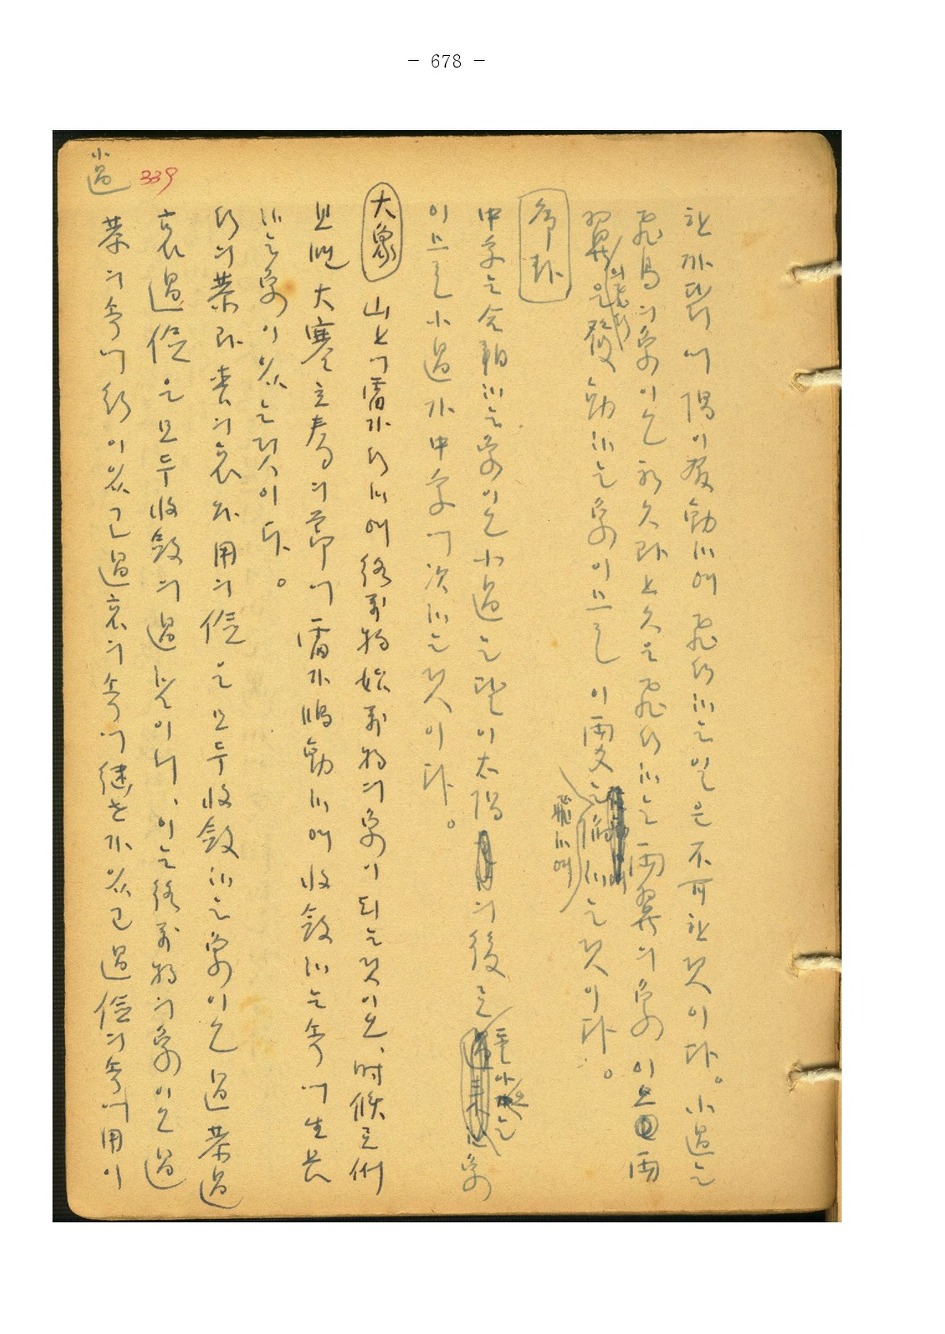 - 678 -
小過 339
한 까닭에 陽이 發動하여 飛行하는 일은 不可한 것이다。小過는
飛鳥의 象이오 初 는 飛行하는 兩翼의 象이오 兩
翼은 發動하는 象이므로 이 兩爻는 하는 것이다。
飛하여
序卦
中孚는 하는 象이오 小過는 이 太陽의 後로 돌아 는 象
이므로 小過가 中孚에 次하는 것이다。
大象 山上에 雷가 行하여 終萬物始萬物의 象이 되는 것이오、時候로 
보면 大寒立春의 節에 雷가 鳴動하여 收斂하는 속에 生長
하는 象이 있는 것이다。
行의 恭과 喪의 哀와 用의 儉은 모두 收斂하는 象이오 過恭過
哀過儉은 모두 收斂의 過 이니、이는 終萬物의 象이오 過
恭의 속에 行이 있고 過哀의 속에 가 있고 過儉의 속에 用이